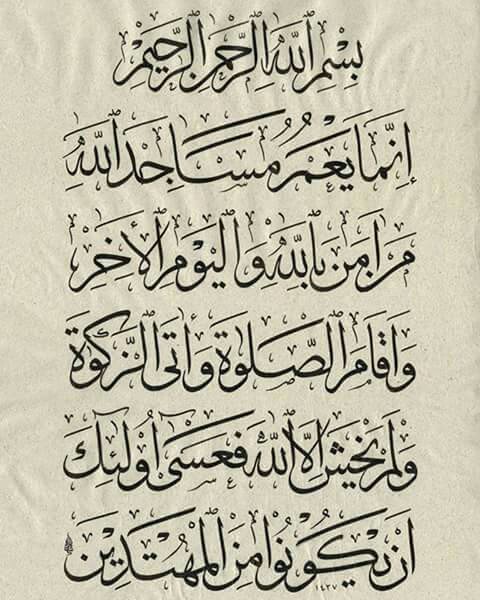 بِسْمِ اللَّهِ الرَّحْمَٰنِ الرَّحِيمِ
إِنَّمَا يَعْمُرُ مَسَاجِدَ اللَّهِ
مَنْ آمَنَ بِاللَّهِ وَالْيَوْمِ الْآخِرِ
وَأَقَامَ الصَّلَاةَ وَآتَى الزَّكَوٰةَ
وَلَمْ يَخْشَ إِلَّا اللَّهَ فَعَسَىٰ أُولَٰئِكَ
أَنْ يَكُونُوا مِنَ الْمُهْتَدِينَ
١٤٣٧